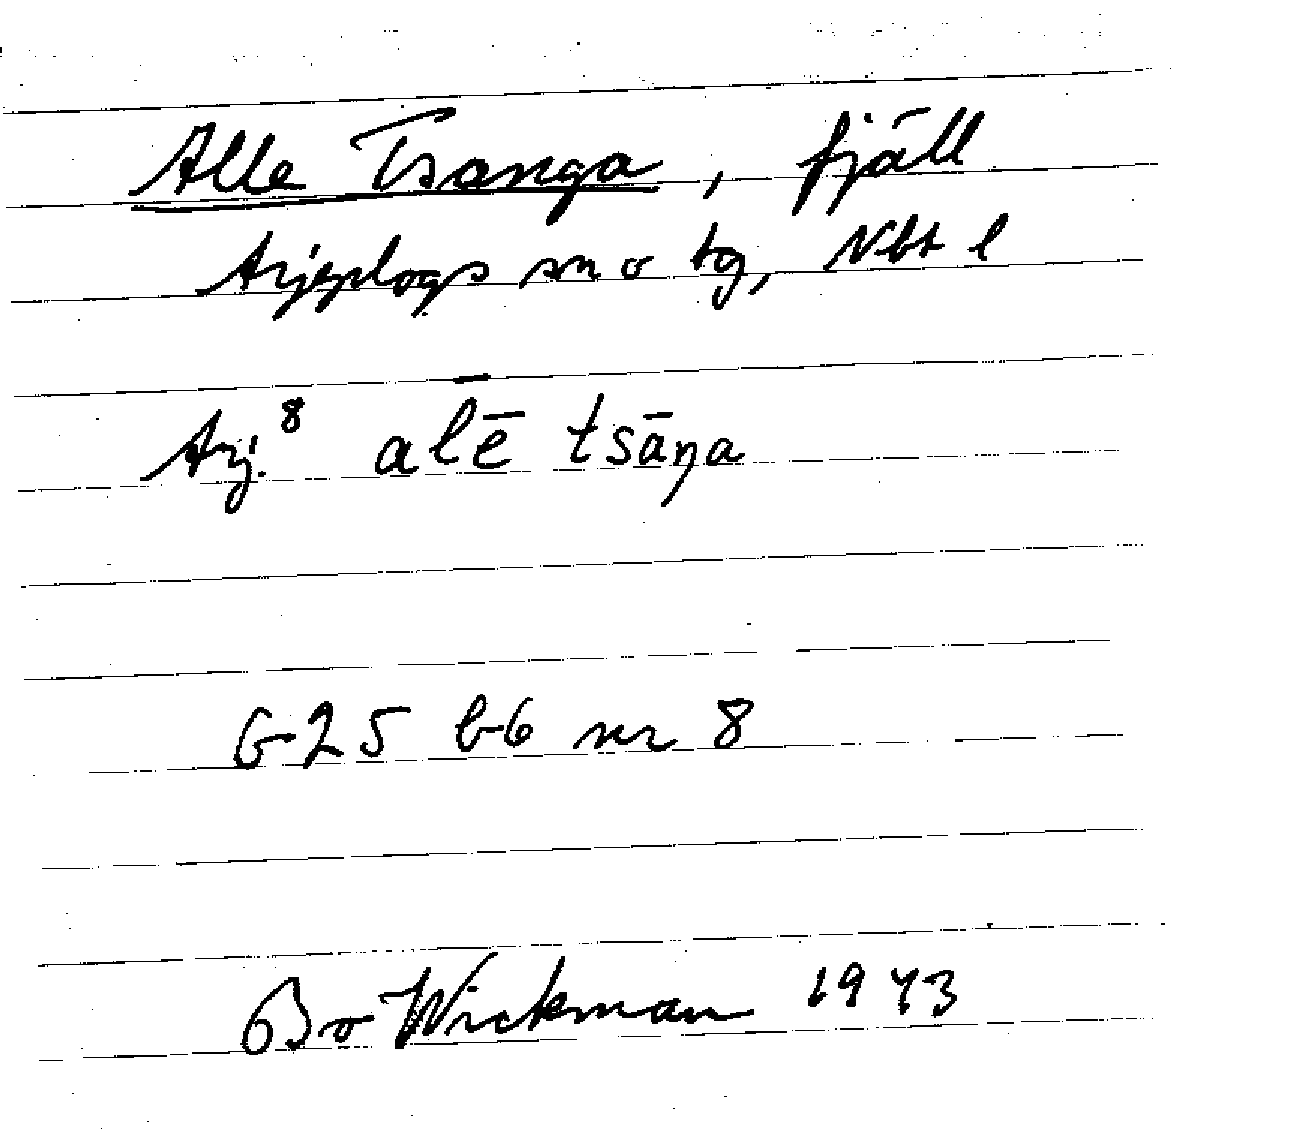 Alle Tsanga, fjäll
Arjeplogs sn o tg, Nbt l
Arj.⁸ al̄ē tsāŋa
G25 b6 nr 8
Bo Wickman 1943